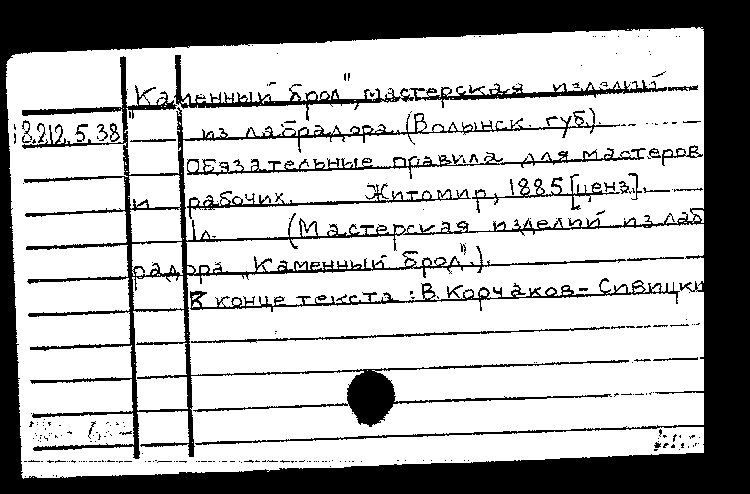 "Каменный брод", мастерская изделий
18.212.5.38 из лабрадора (Волынск. губ).
Обязательные правила для мастеров
и рабочих. Житомир, 1885 [ценз].
1л. (Мастерская изделий из лаб
радора "Каменный брод".).
В конце текста: В. Корчаков-Сивицки